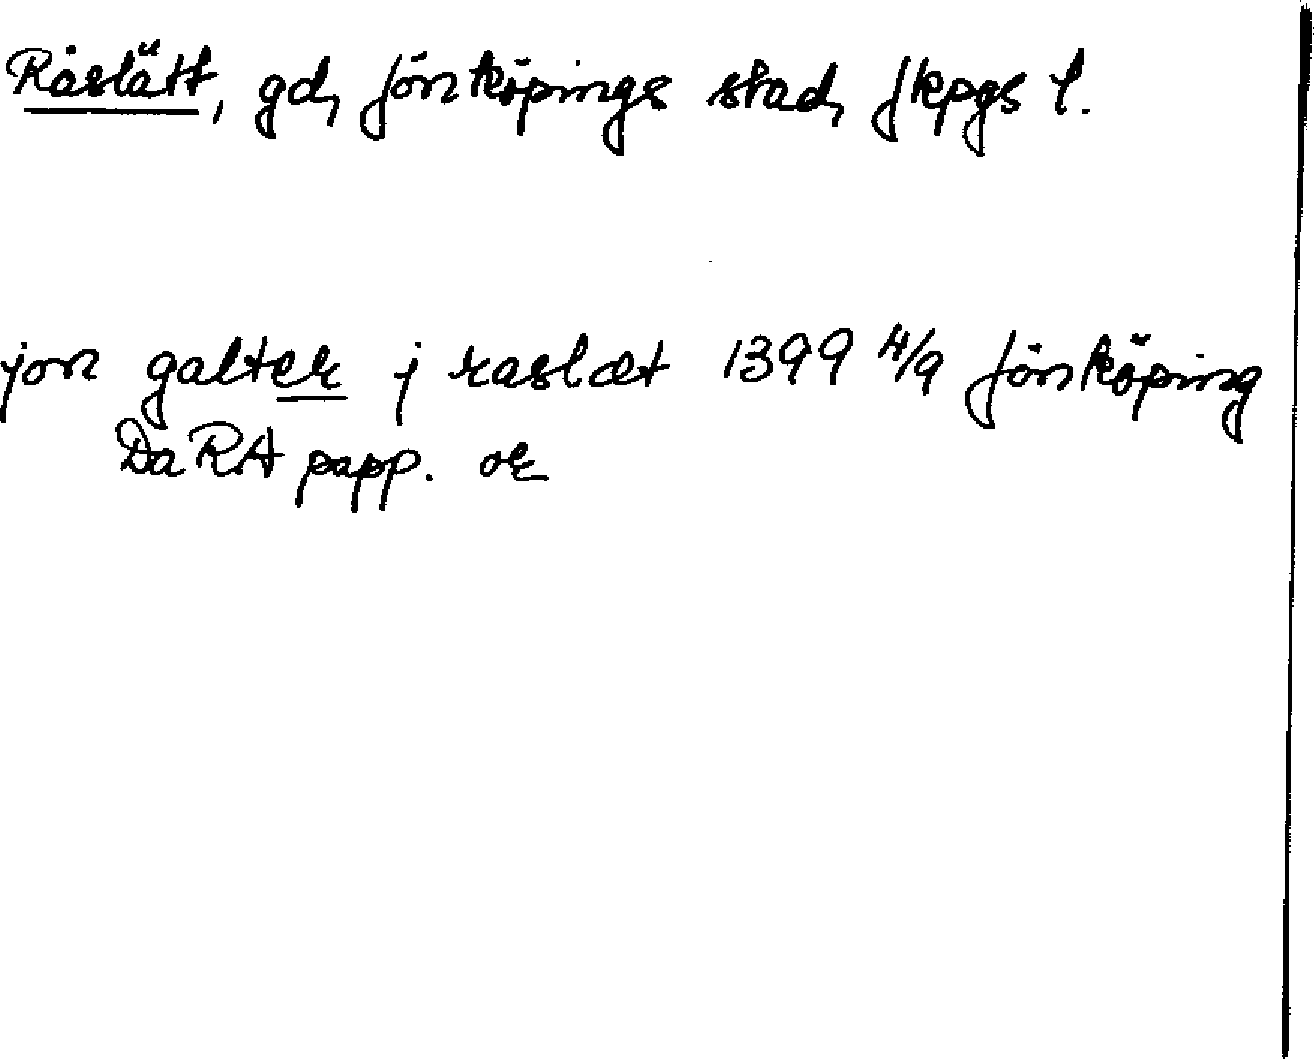 Råslätt, gd, Jönköpings stad, Jkpgs l.
jon galter j raslæt 1399 4/9 Jönköping
DaRA papp. or